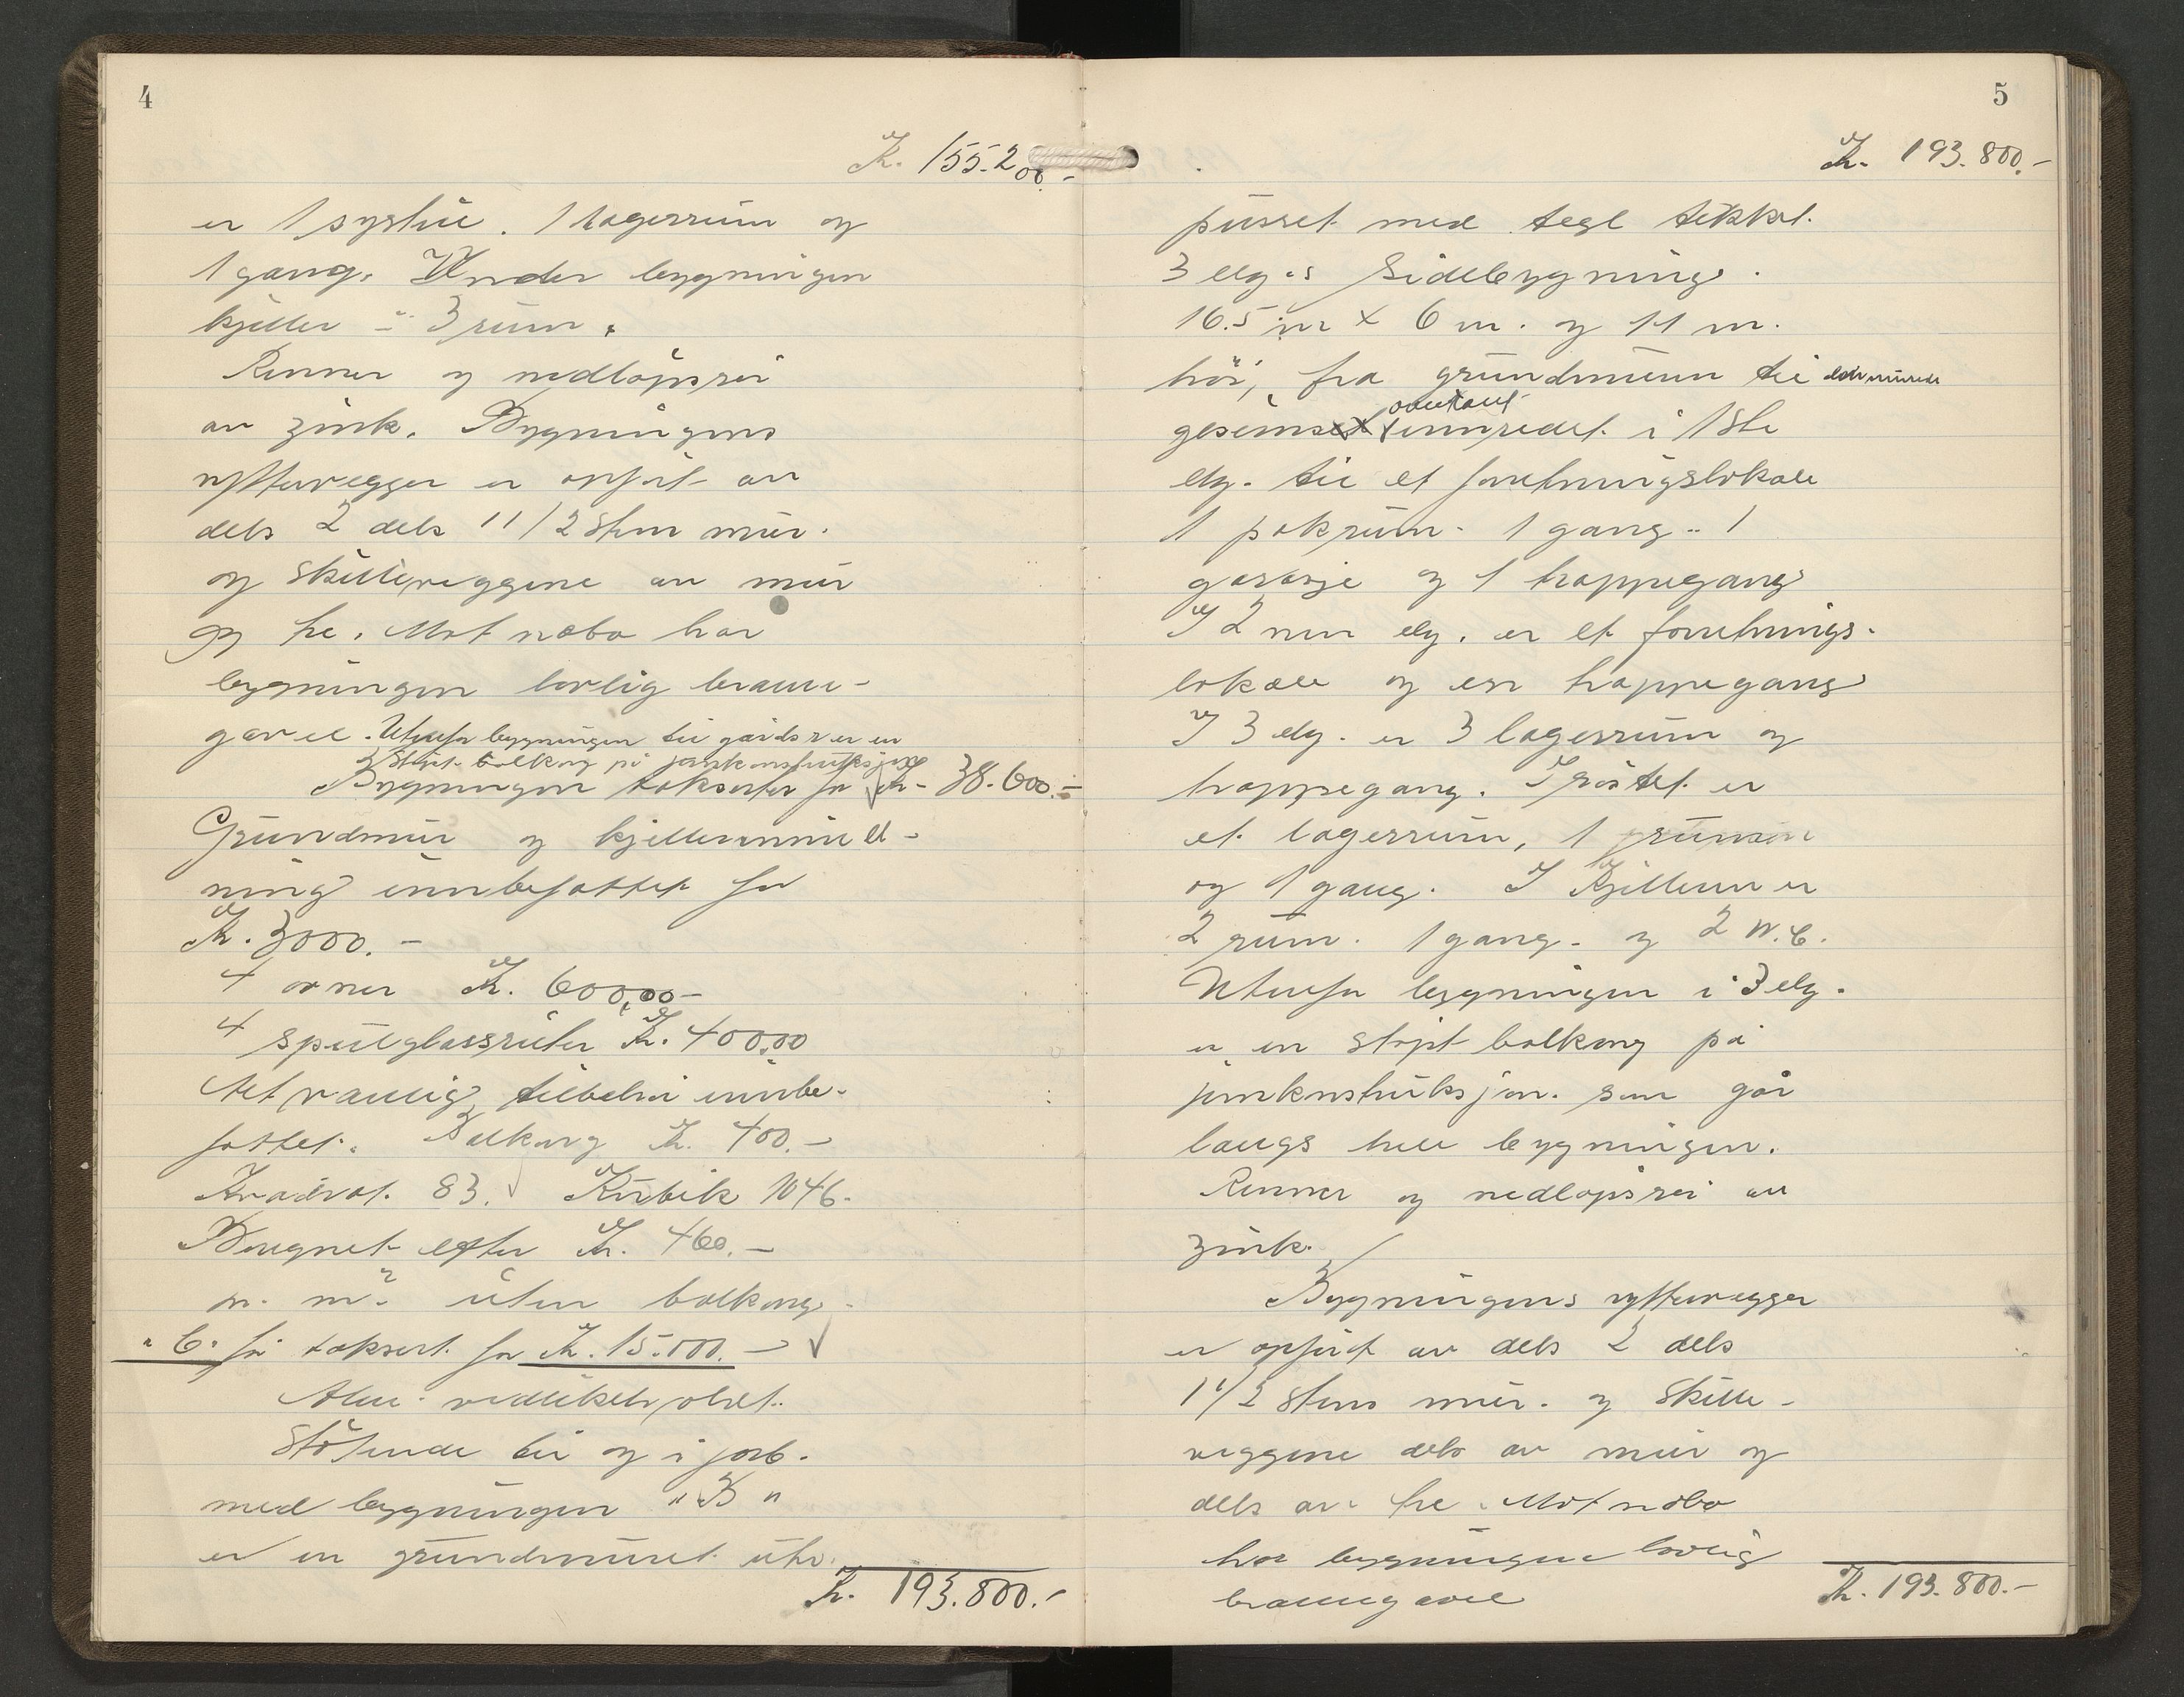 4
Kr. 155.200.-
er 1 systue. 1 lagerrum og
1 gang. Under bygningen
kjeller i 3 rum.
Renner og nedløpsrør
av zink. Bygningens
ytterveggger er opført av
dels 2 dels 1 1/2 stens mur.
og skilleveggene av mur
og tre. Mot nabo har
bygningen lovlig brann-
gavl. Utenfor bygningen til gårdsr er en
støpt balkong på jernkonstruksjon
Bygningen takseres for Kr. 38.600.-
Grundmur og kjellerinnred-
ning innbefattet for
Kr. 3000.-
4 ovner Kr. 600,00-
4 speilglassruter Kr. 400,00
Alt vanlig tilbehør innbe-
fattet. Balkong Kr. 400.-
Kvadrat. 83. Kubik 1046.
Beregnet efter Kr. 460.-
pr. m² uten balkong.
"C" før taksert for Kr. 15.000.-
Alm. vedlikeholdt.
Støtende til og i forb.
med bygningen "B"
er en grundmuret utv.
Kr. 193.800.-
5
Kr. 193.800.-
pusset med tegl tekket
3 etg.s Sidebygning.
16.5 m x 6 m. og 11 m.
høi, fra grundmuren til den murede
overkant
gesims innredet i 1ste
etg. til et forretningslokale
1 pakrum. 1 gang. 1
garasje og 1 trappegang
I 2nen etg. er et forretnings-
lokale og en trappegang
I 3 etg. er 3 lagerrum og
trappegang. I røstet er
et lagerrum, 1
og 1 gang. I Kjelleren er
2 rum. 1 gang. og 2 W.C.
Utenfor bygningen i 3 etg.
er en støpt balkong på
jernkonstruksjon. som går
langs hele bygningen.
Renner og nedløpsrør av
zink.
Bygningens yttervegger
er opført av dels 2 dels
1 1/2 stens mur. og skille-
veggene dels av mur og
dels av tre. Mot nabo
har bygningen lovlig
branngavl
Kr. 193.800.-